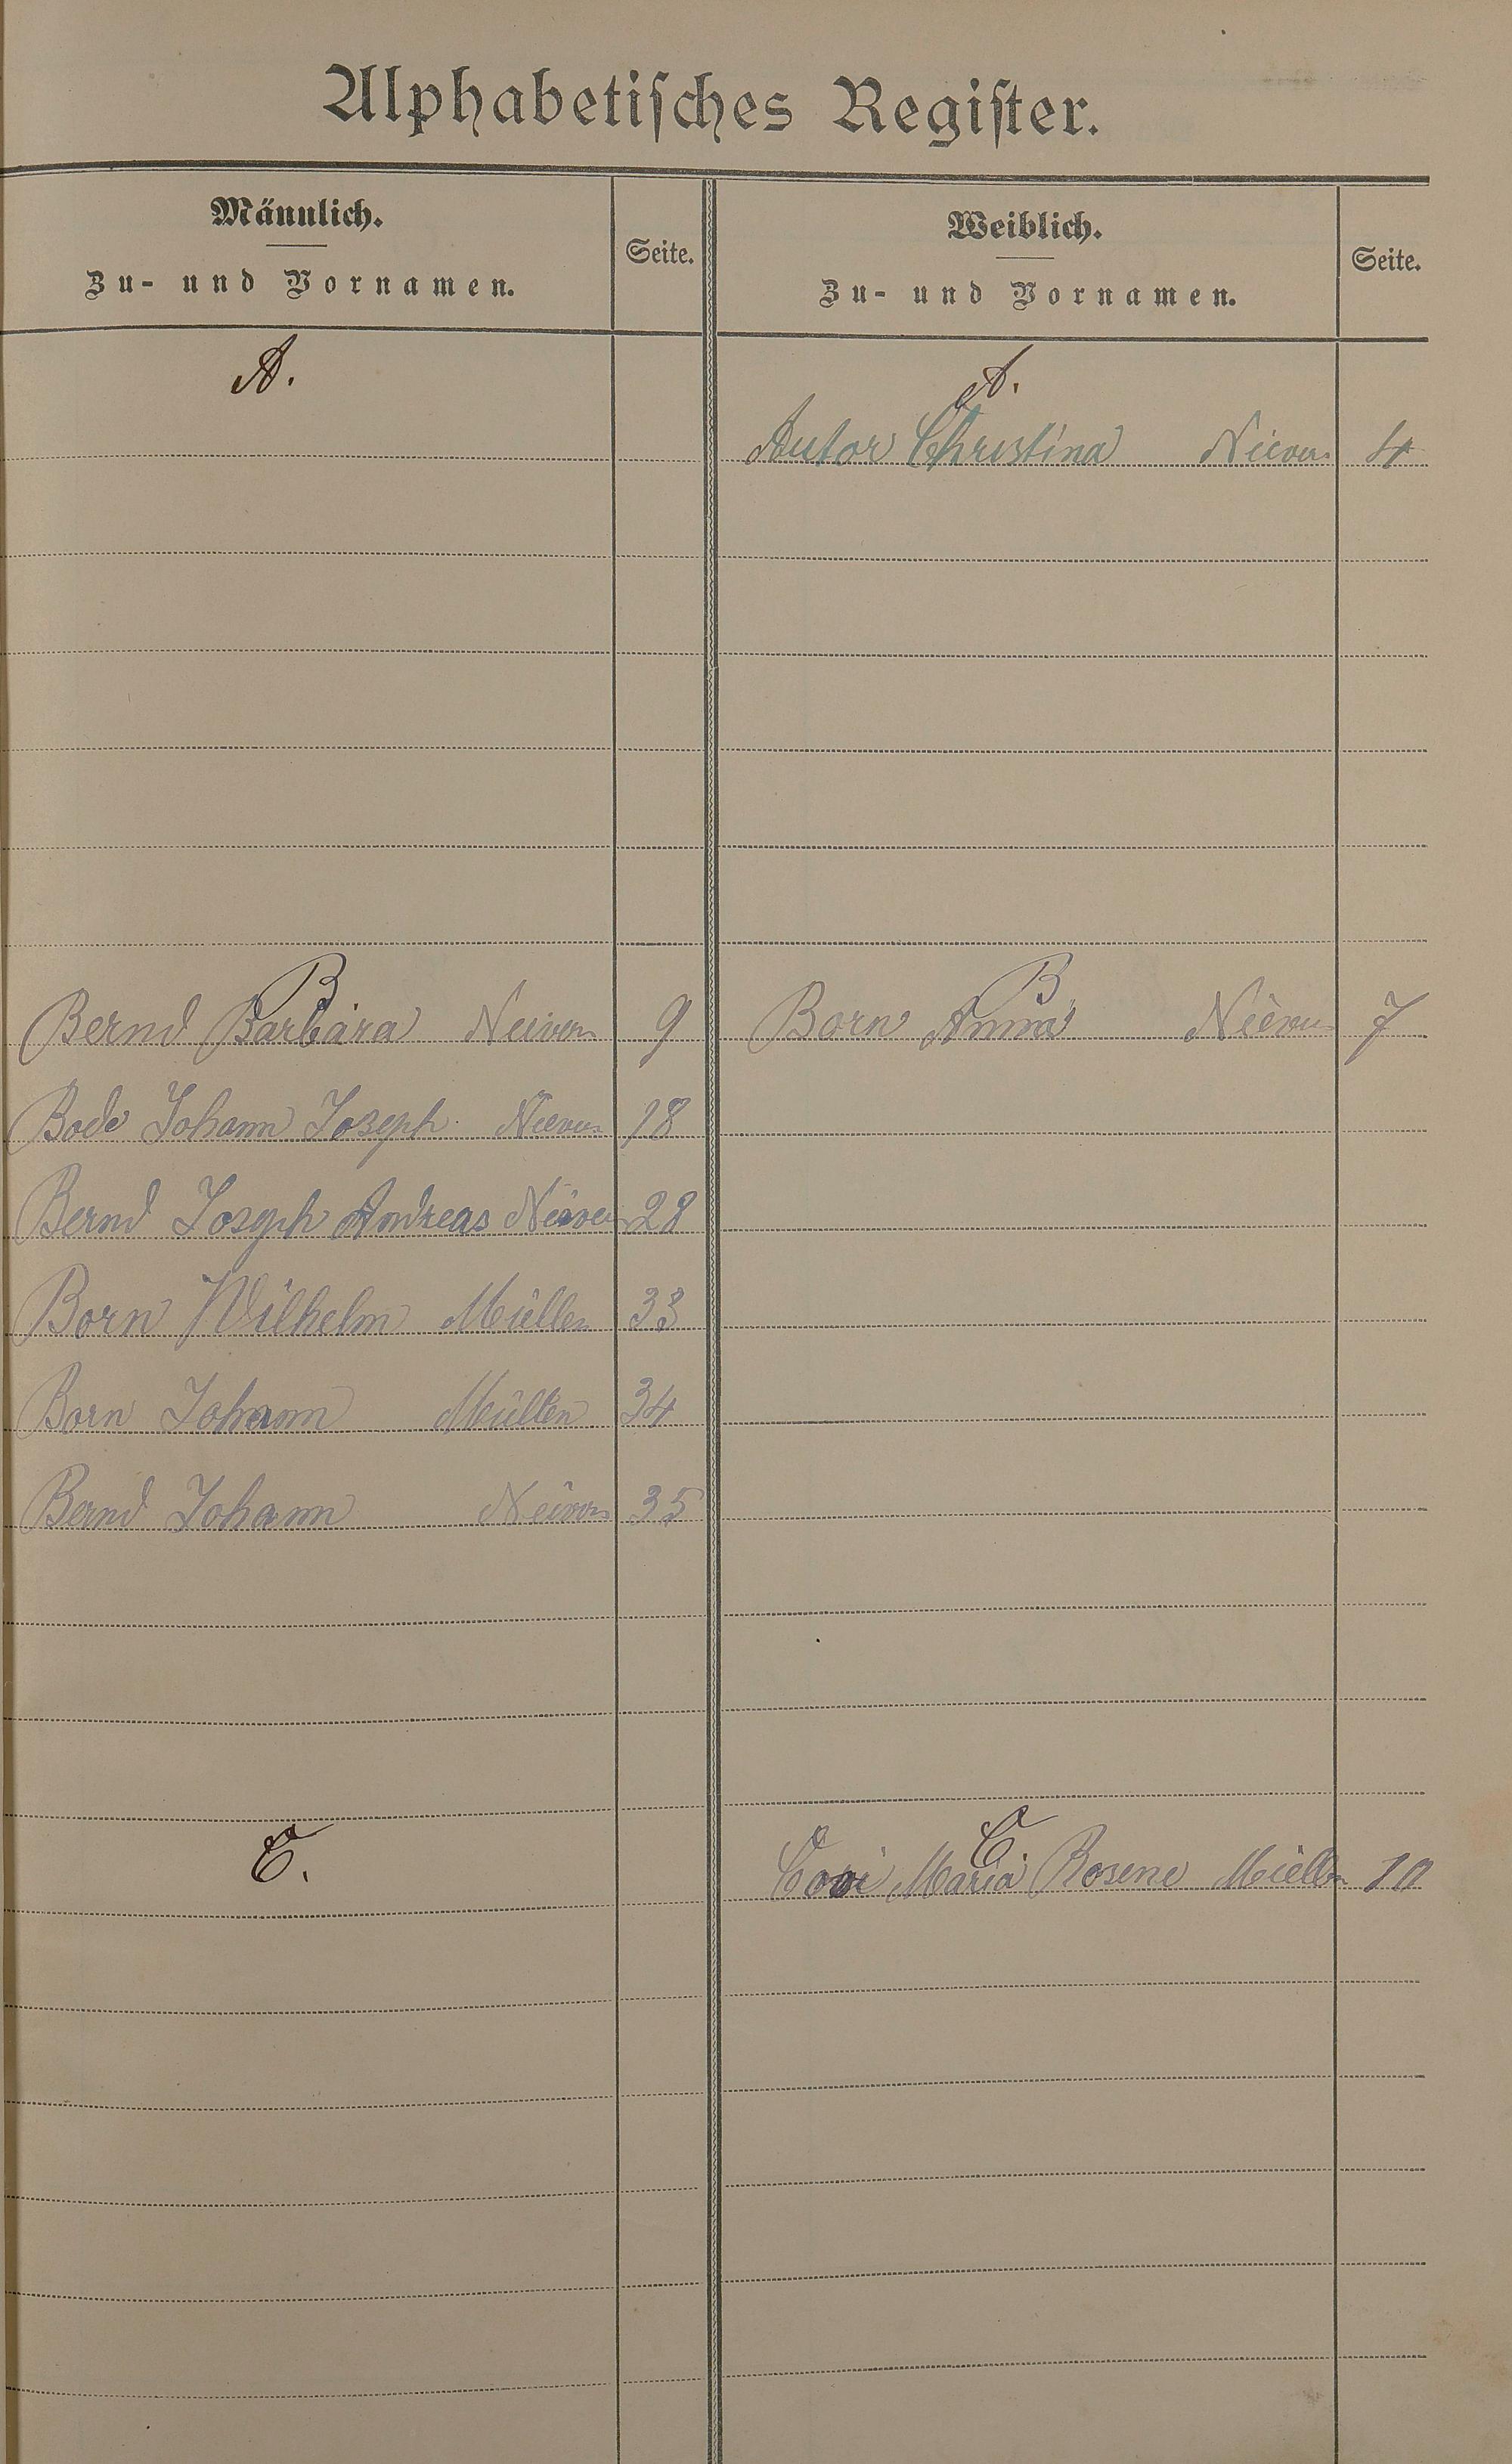 Alphabetisches Register.
Männlich.
Zu- und Vornamen.
Seite.
Weiblich.
Zu- und Vornamen.
Seite.
A.
A.
Autor Christina Nievern 4
B
B
Bernd Barbara Nievern 9
Born Anna Nievern 7
Bode Johann Joseph Nievern 18
Bernd Joseph Andreas Nievern 28
Born Wilhelm Miellen 33
Born Johann Miellen 34
Bernd Johann Nievern 35
C.
C.
Maria Rosene Miellen 10